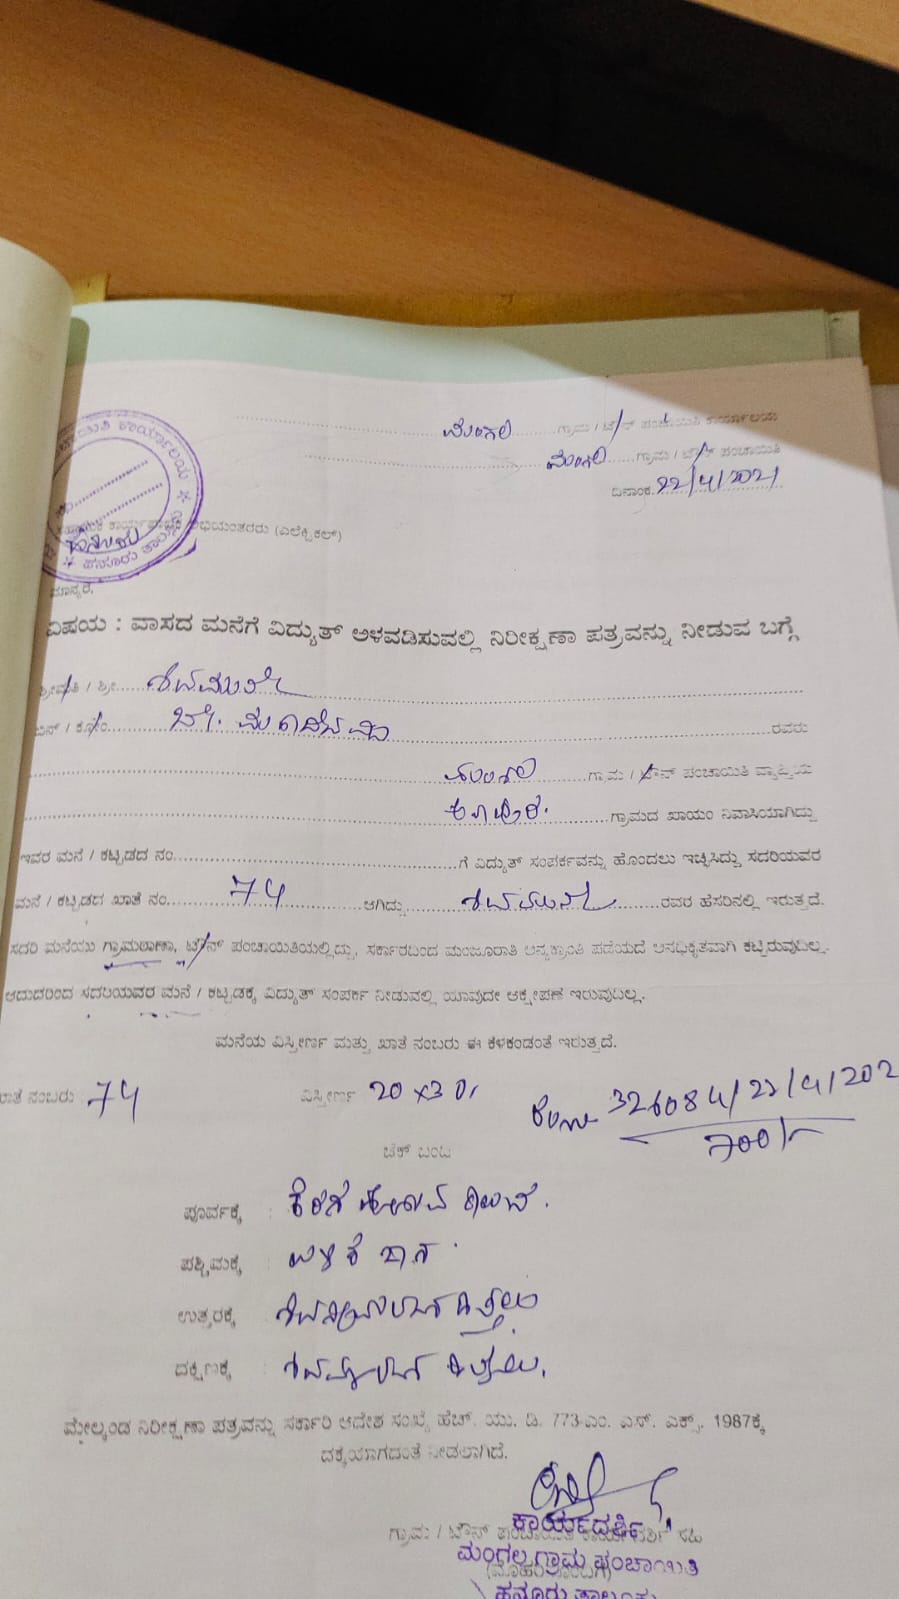 ಮಂಗಲ ಗ್ರಾಮ / ಟೌನ್ ಪಂಚಾಯಿತಿ ಕಾರ್ಯಾಲಯ
ಮಂಗಲ ಗ್ರಾಮ / ಟೌನ್ ಪಂಚಾಯಿತಿ
ದಿನಾಂಕ 22/4/2021
ಕಾರ್ಯಾಲಯ
ಹನೂರು ತಾಲ್ಲೂಕು
ಸಹಾಯಕ ಕಾರ್ಯಪಾಲಕ ಅಭಿಯಂತರರು (ಎಲೆಕ್ಟ್ರಿಕಲ್)
ಮಾನ್ಯರೆ,
ವಿಷಯ : ವಾಸದ ಮನೆಗೆ ವಿದ್ಯುತ್ ಅಳವಡಿಸುವಲ್ಲಿ ನಿರೀಕ್ಷಣಾ ಪತ್ರವನ್ನು ನೀಡುವ ಬಗ್ಗೆ
ಶ್ರೀಮತಿ / ಶ್ರೀ ಶಿವಮೂರ್ತಿ
ಬಿನ್ / ಕೋಂ ರವರು
ಮಂಗಲ ಗ್ರಾಮ / ಟೌನ್ ಪಂಚಾಯಿತಿ ವ್ಯಾಪ್ತಿಯ
ಗ್ರಾಮದ ಖಾಯಂ ನಿವಾಸಿಯಾಗಿದ್ದು
ಇವರ ಮನೆ / ಕಟ್ಟಡದ ನಂ. ಗೆ ವಿದ್ಯುತ್ ಸಂಪರ್ಕವನ್ನು ಹೊಂದಲು ಇಚ್ಛಿಸಿದ್ದು ಸದರಿಯವರ
ಮನೆ / ಕಟ್ಟಡದ ಖಾತೆ ನಂ. 74 ಆಗಿದ್ದು ಶಿವಮೂರ್ತಿ ರವರ ಹೆಸರಿನಲ್ಲಿ ಇರುತ್ತದೆ.
ಸದರಿ ಮನೆಯು ಗ್ರಾಮಠಾಣಾ, ಟೌನ್ ಪಂಚಾಯಿತಿಯಲ್ಲಿದ್ದು, ಸರ್ಕಾರದಿಂದ ಮಂಜೂರಾತಿ ಅನ್ಯಕ್ರಾಂತಿ ಪಡೆಯದೆ ಅನಧಿಕೃತವಾಗಿ ಕಟ್ಟಿರುವುದಿಲ್ಲ.
ಆದುದರಿಂದ ಸದರಿಯವರ ಮನೆ / ಕಟ್ಟಡಕ್ಕೆ ವಿದ್ಯುತ್ ಸಂಪರ್ಕ ನೀಡುವಲ್ಲಿ ಯಾವುದೇ ಆಕ್ಷೇಪಣೆ ಇರುವುದಿಲ್ಲ.
ಮನೆಯ ವಿಸ್ತೀರ್ಣ ಮತ್ತು ಖಾತೆ ನಂಬರು ಈ ಕೆಳಕಂಡಂತೆ ಇರುತ್ತದೆ.
ಖಾತೆ ನಂಬರು 74 ವಿಸ್ತೀರ್ಣ 20 x 30
326084/22/4/202
700/-
ಚೆಕ್ ಬಂದಿ
ಪೂರ್ವಕ್ಕೆ :
ಪಶ್ಚಿಮಕ್ಕೆ :
ಉತ್ತರಕ್ಕೆ :
ದಕ್ಷಿಣಕ್ಕೆ :
ಮೇಲ್ಕಂಡ ನಿರೀಕ್ಷಣಾ ಪತ್ರವನ್ನು ಸರ್ಕಾರಿ ಆದೇಶ ಸಂಖ್ಯೆ ಹೆಚ್. ಯು. ಡಿ. 773-ಎಂ. ಎಸ್. ಎಕ್ಸ್. 1987ಕ್ಕೆ
ದಕ್ಕೆಯಾಗದಂತೆ ನೀಡಲಾಗಿದೆ.
ಕಾರ್ಯದರ್ಶಿ
ಗ್ರಾಮ / ಟೌನ್ ಪಂಚಾಯಿತಿ ಕಾರ್ಯದರ್ಶಿ ಸಹಿ
ಮಂಗಲ ಗ್ರಾಮ ಪಂಚಾಯಿತಿ
(ಮೊಹರಿನೊಂದಿಗೆ)
ಹನೂರು ತಾಲ್ಲೂಕು